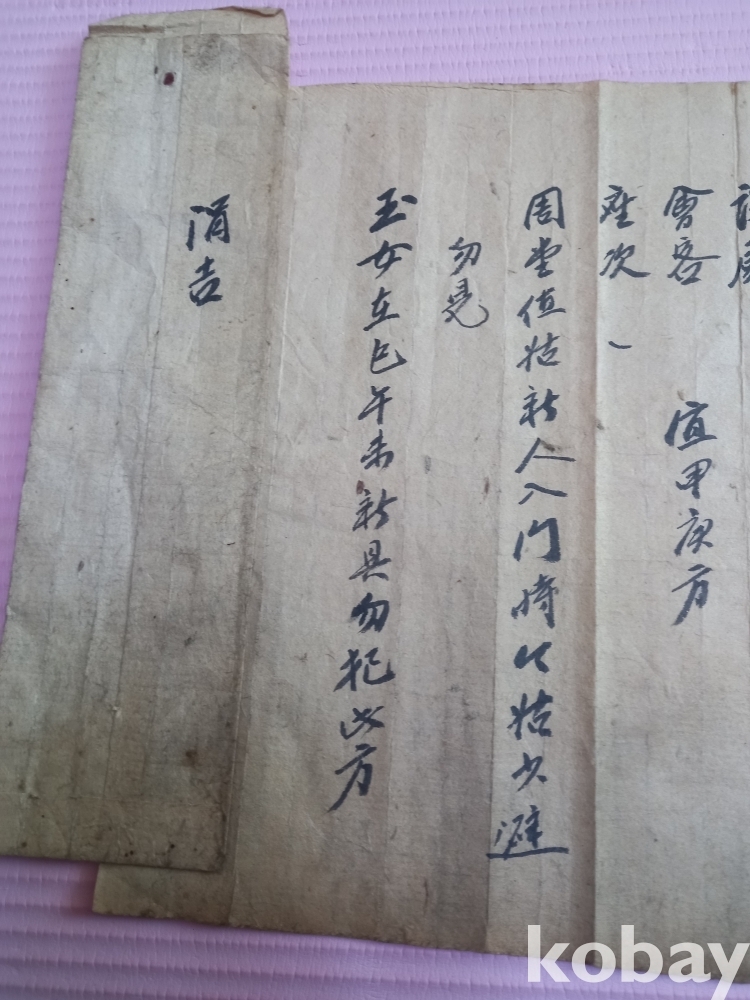 會客 宜甲庚方
座次
周堂值姑新人入門時公姑少避
勿
玉女在巳午未新具勿犯此方
涓吉
kobay